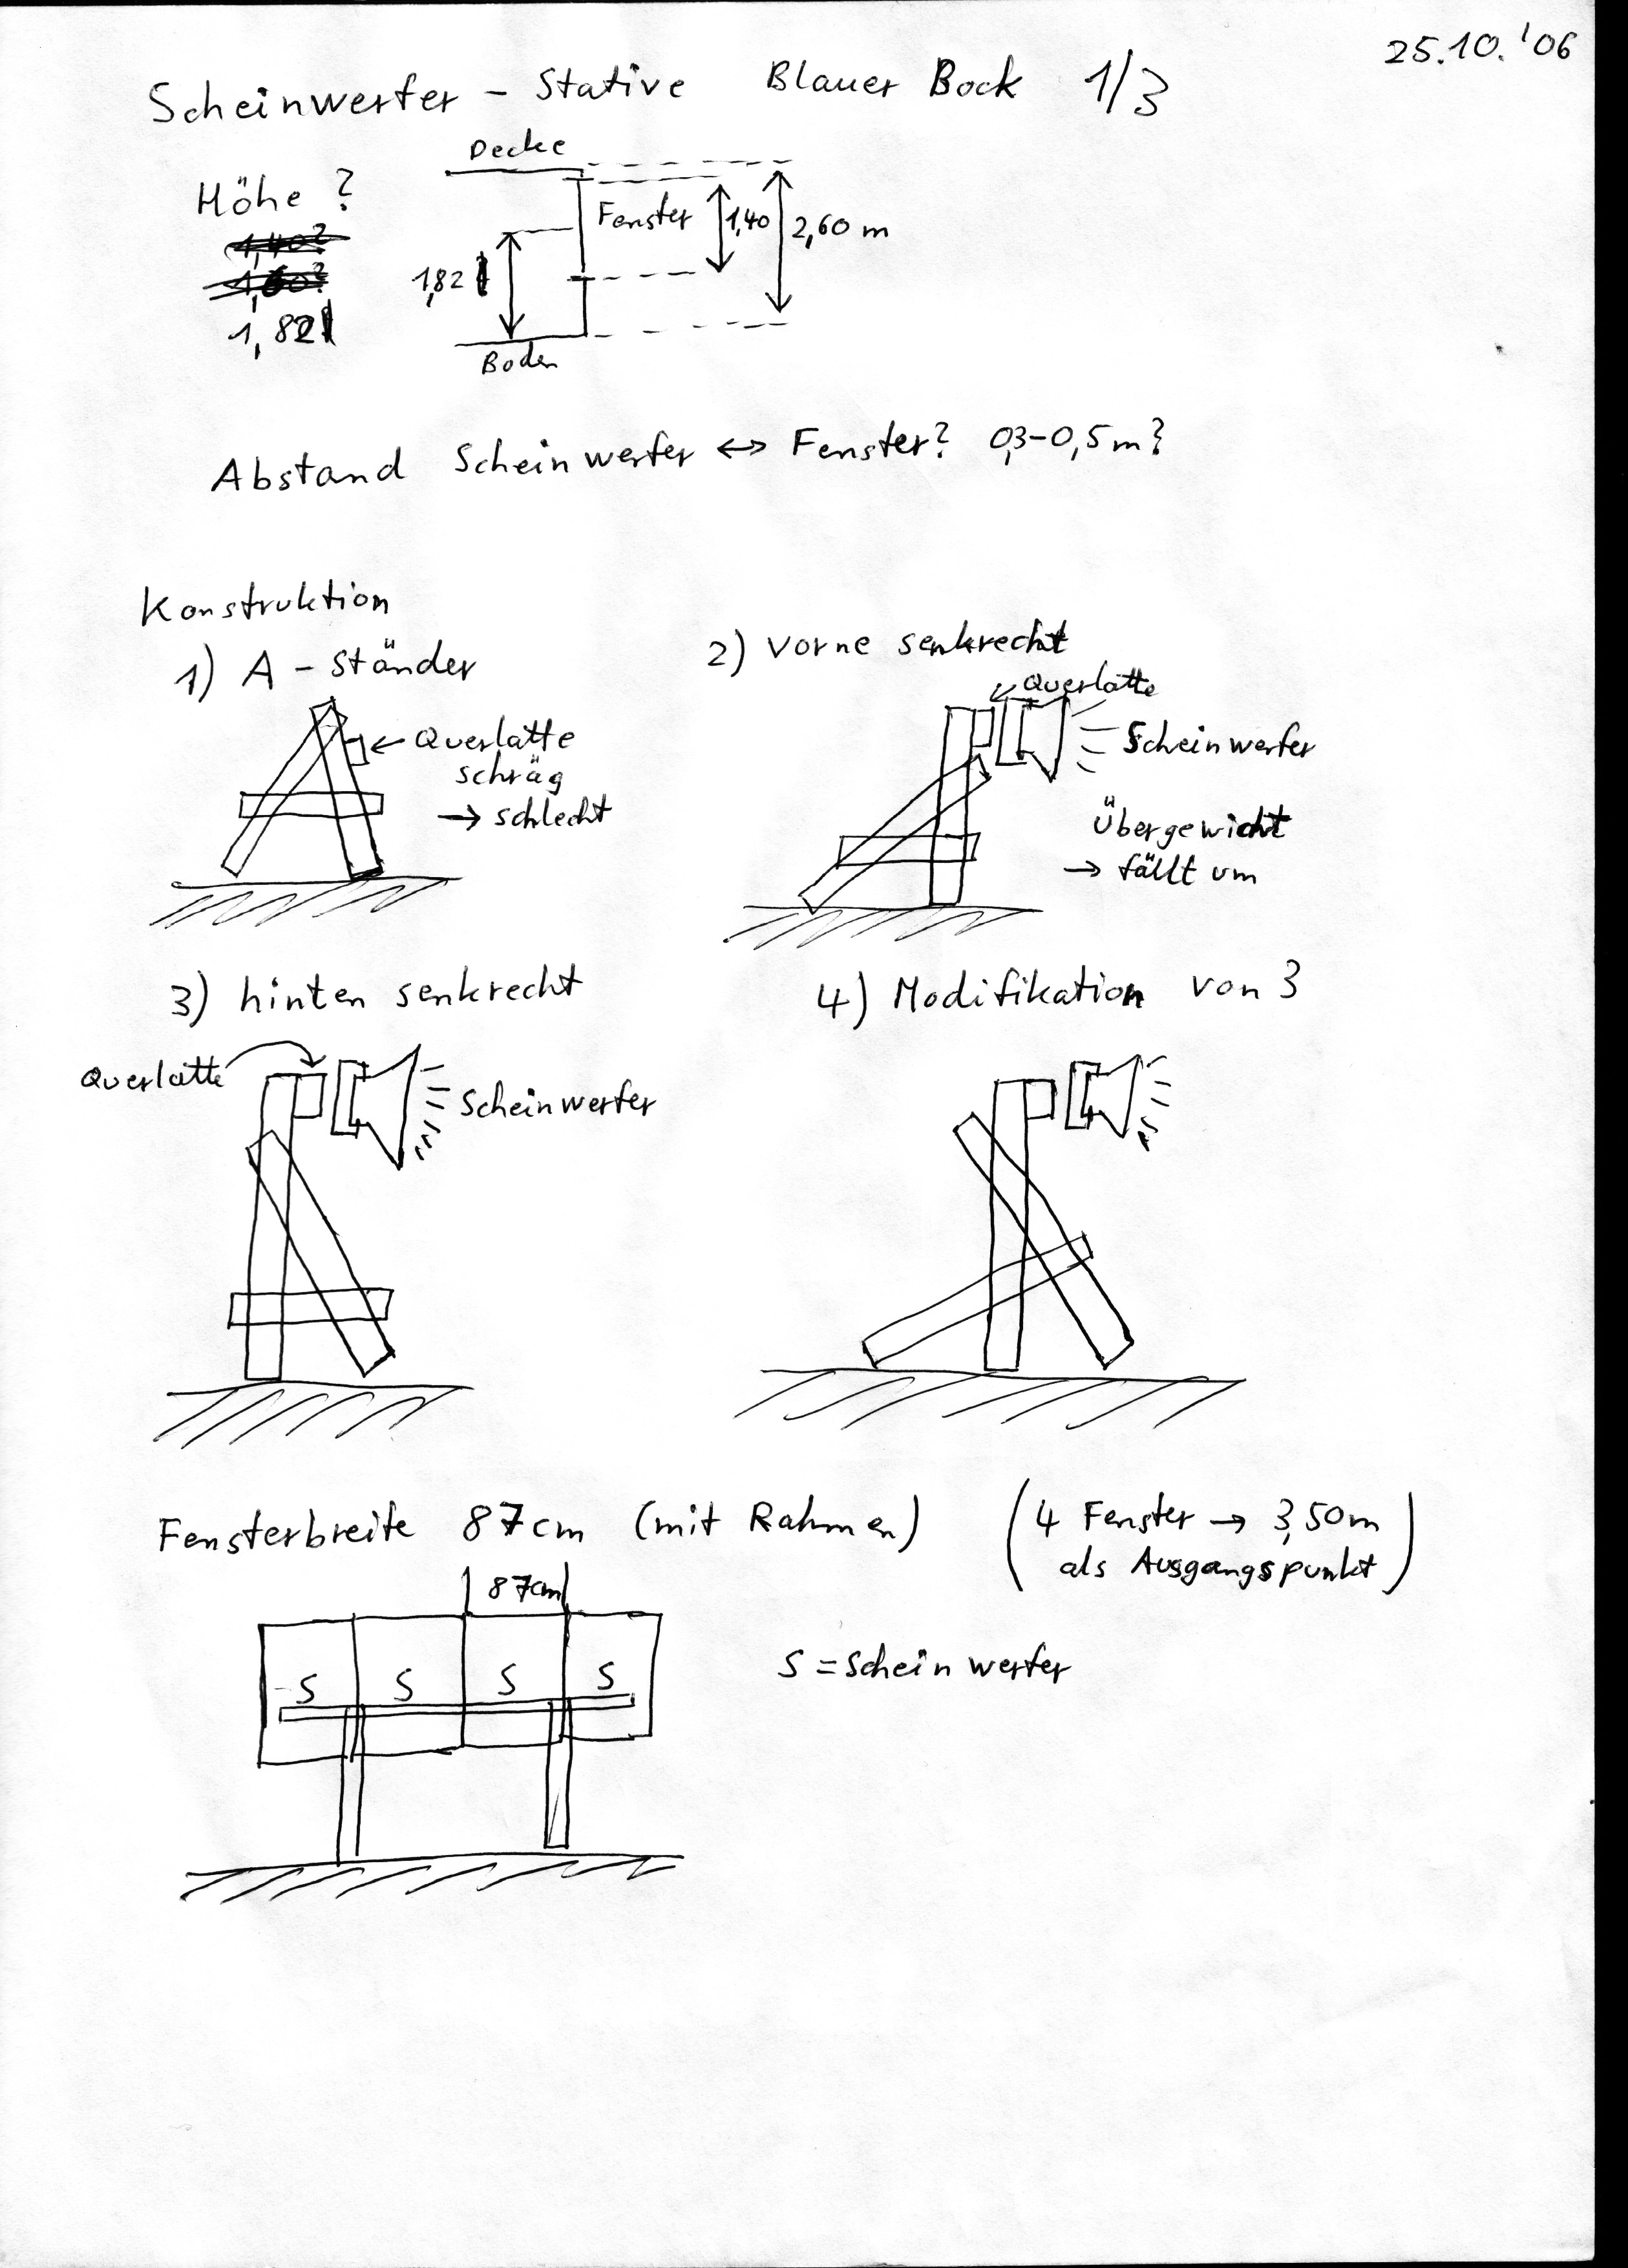 25.10.'06
Scheinwerfer - Stative Blauer Bock 1/3
Decke
Höhe ?
1,40?
1,60?
1,82
Fenster
1,40
2,60 m
1,82
Boden
Abstand Scheinwerfer ↔ Fenster? 0,3-0,5m?
Konstruktion
1) A - Ständer
← Querlatte
schräg
→ schlecht
2) vorne senkrecht
Querlatte
Scheinwerfer
Übergewicht
→ fällt um
3) hinten senkrecht
Querlatte
Scheinwerfer
4) Modifikation von 3
Fensterbreite 87cm (mit Rahmen)
(4 Fenster → 3,50m
als Ausgangspunkt)
87cm
S S S S
S = Scheinwerfer